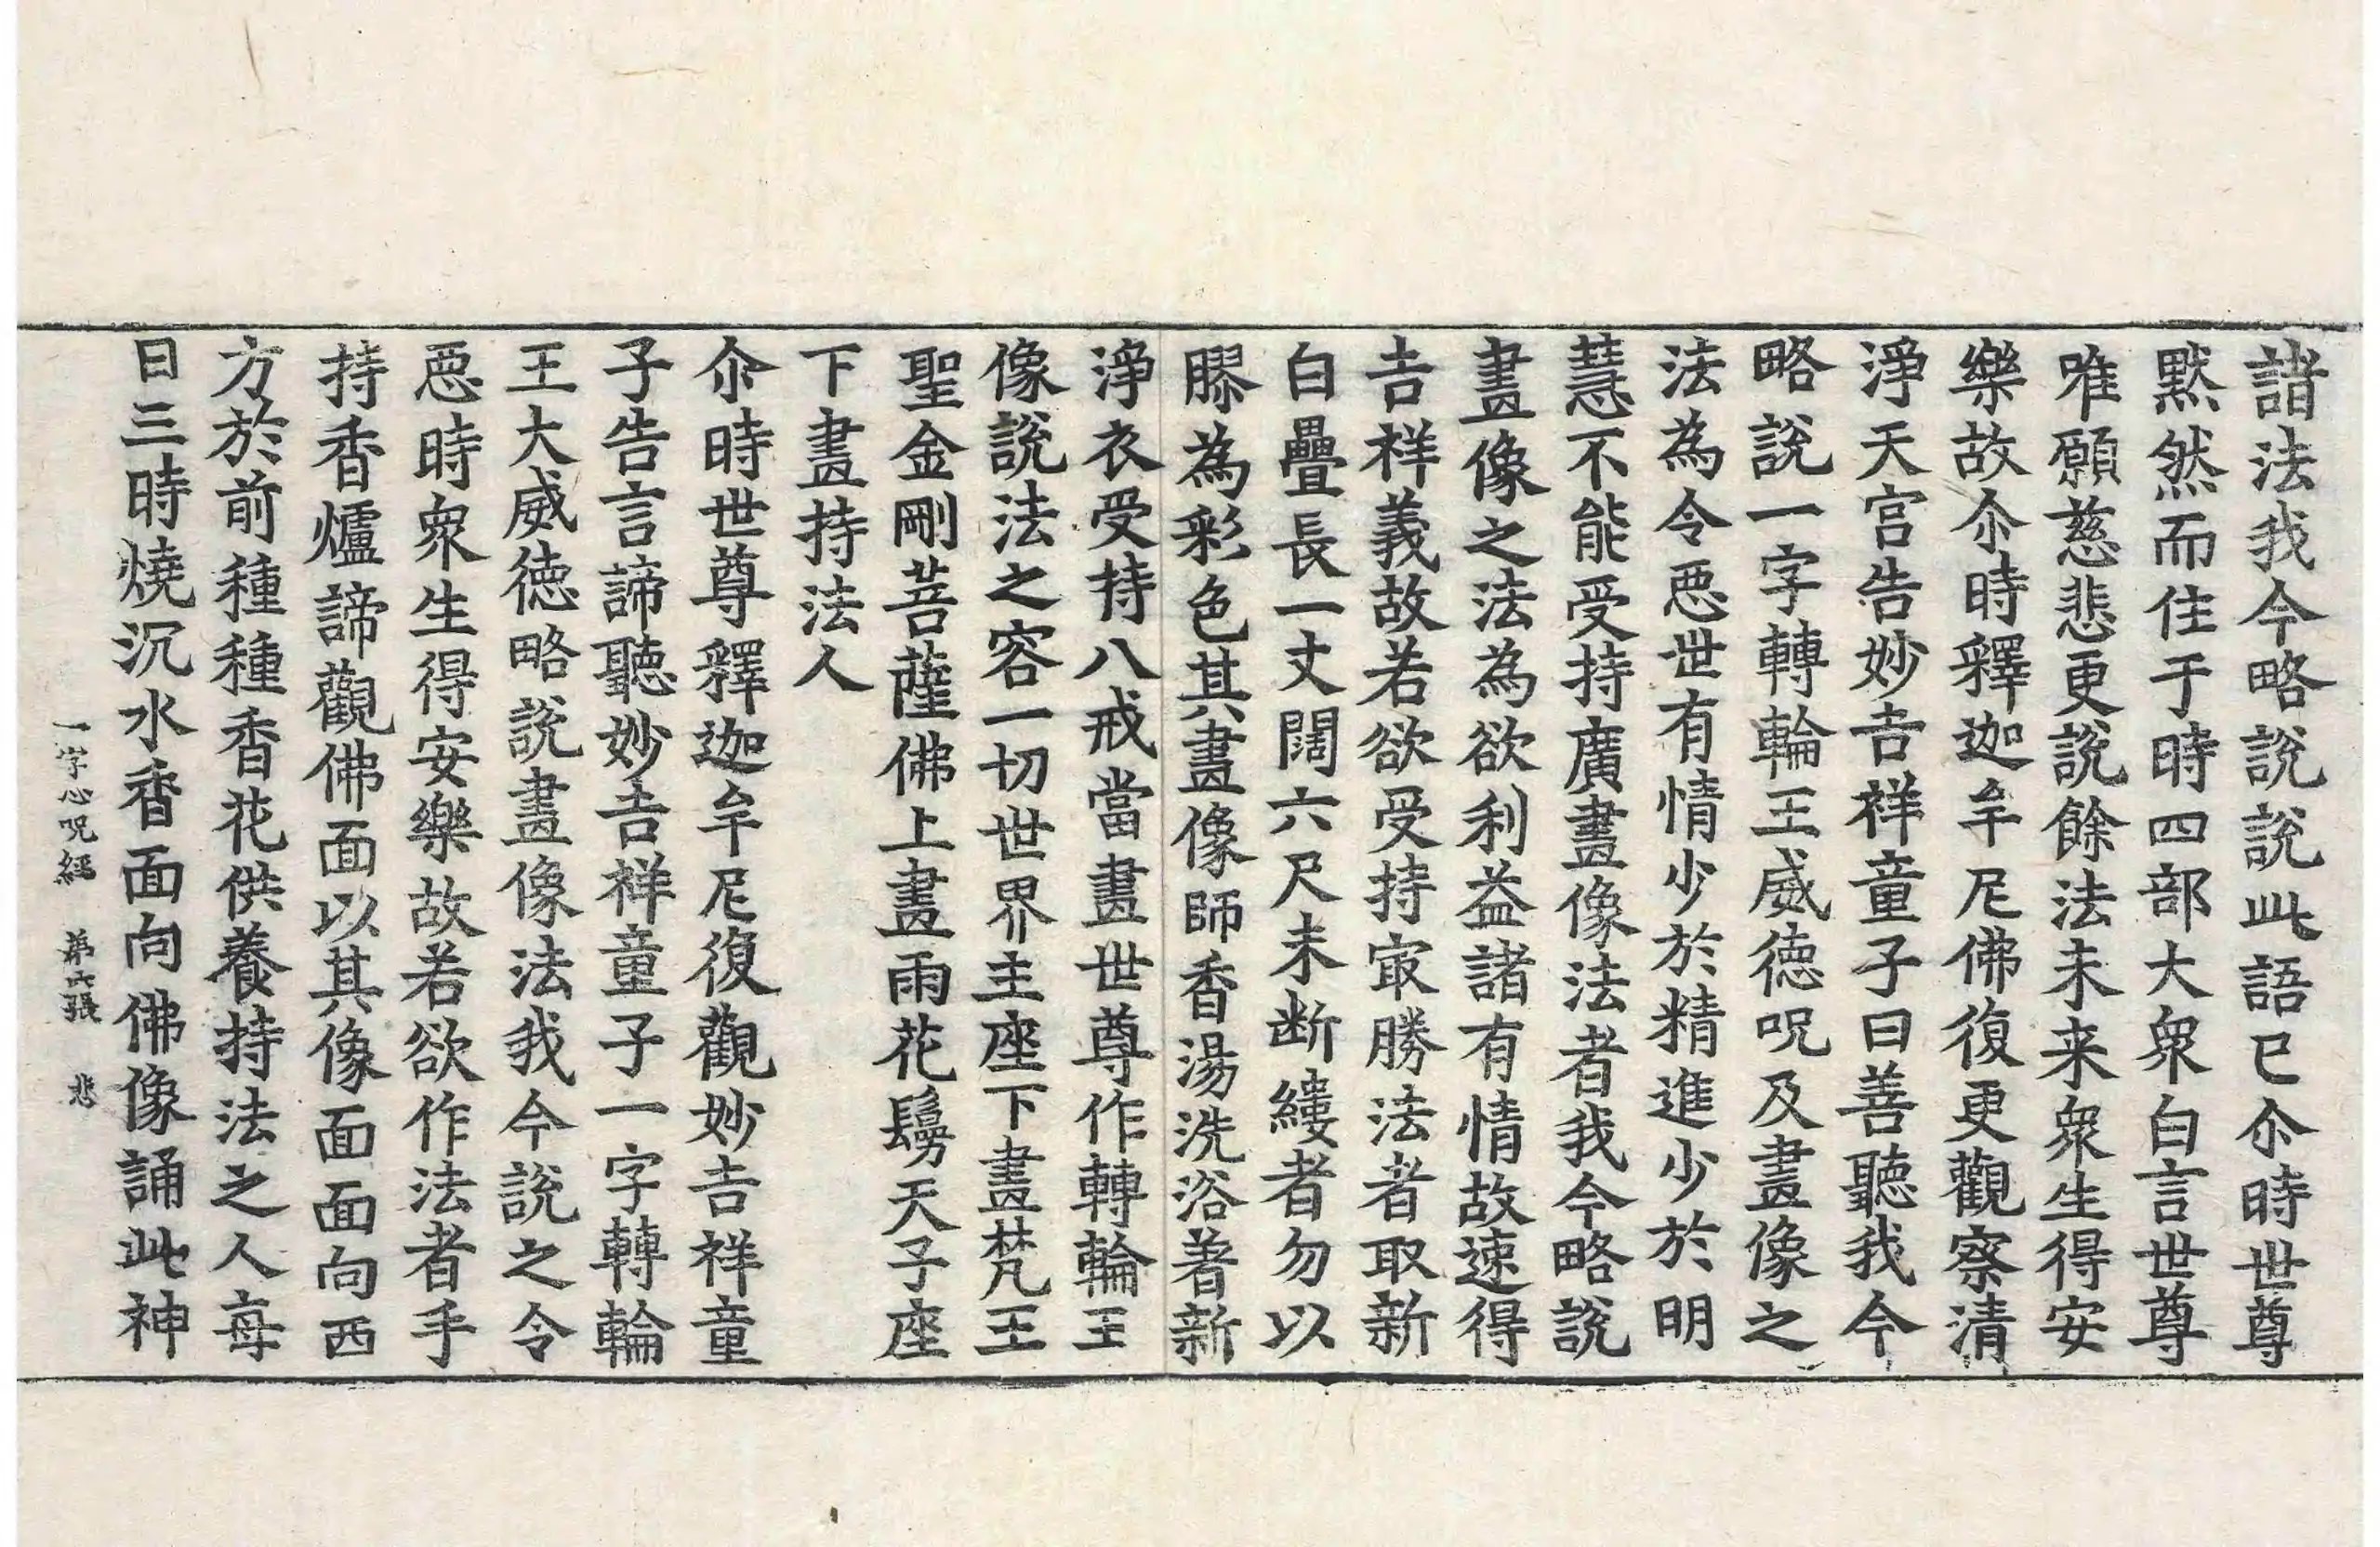 諸法我今略說說此語已尒時世尊
默然而住于時四部大衆白言世尊
唯願慈悲更說餘法未来衆生得安
樂故尒時釋迦牟尼佛復更觀察清
淨天宮告妙吉祥童子曰善聽我今
略說一字轉輪王威徳呪及畫像之
法為令惡世有情少於精進少於明
慧不能受持廣畫像法者我今略說
畫像之法為欲利益諸有情故速得
吉祥義故若欲受持㝡勝法者取新
白疊長一丈闊六尺未断縷者勿以
膠為彩色其畫像師香湯洗浴著新
淨衣受持八戒當畫世尊作轉輪王
像說法之容一切世界主座下畫梵王
聖金剛菩薩佛上畫雨花鬘天子座
下畫持法人
尒時世尊釋迦牟尼復觀妙吉祥童
子告言諦聽妙吉祥童子一字轉輪
王大威徳略說畫像法我今說之令
惡時衆生得安樂故若欲作法者手
持香爐諦觀佛面以其像面面向西
方於前種種香花供養持法之人每
日三時燒沉水香面向佛像誦此神
一字心呪經 苐六張 悲